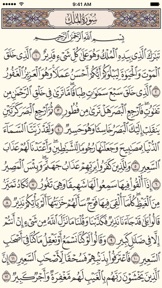 9:41 AM
سُورَةُ المُلْكِ
بِسْمِ ٱللَّهِ ٱلرَّحْمَٰنِ ٱلرَّحِيمِ
تَبَٰرَكَ ٱلَّذِي بِيَدِهِ ٱلْمُلْكُ وَهُوَ عَلَىٰ كُلِّ شَيْءٍ قَدِيرٌ ١ ٱلَّذِي خَلَقَ
ٱلْمَوْتَ وَٱلْحَيَوٰةَ لِيَبْلُوَكُمْ أَيُّكُمْ أَحْسَنُ عَمَلًا وَهُوَ ٱلْعَزِيزُ ٱلْغَفُورُ
٢ ٱلَّذِي خَلَقَ سَبْعَ سَمَٰوَٰتٍ طِبَاقًا مَّا تَرَىٰ فِي خَلْقِ ٱلرَّحْمَٰنِ مِن
تَفَٰوُتٍ فَٱرْجِعِ ٱلْبَصَرَ هَلْ تَرَىٰ مِن فُطُورٍ ٣ ثُمَّ ٱرْجِعِ ٱلْبَصَرَ كَرَّتَيْنِ
يَنقَلِبْ إِلَيْكَ ٱلْبَصَرُ خَاسِئًا وَهُوَ حَسِيرٌ ٤ وَلَقَدْ زَيَّنَّا ٱلسَّمَآءَ
ٱلدُّنْيَا بِمَصَٰبِيحَ وَجَعَلْنَٰهَا رُجُومًا لِّلشَّيَٰطِينِ وَأَعْتَدْنَا لَهُمْ عَذَابَ
ٱلسَّعِيرِ ٥ وَلِلَّذِينَ كَفَرُوا۟ بِرَبِّهِمْ عَذَابُ جَهَنَّمَ وَبِئْسَ ٱلْمَصِيرُ
٦ إِذَآ أُلْقُوا۟ فِيهَا سَمِعُوا۟ لَهَا شَهِيقًا وَهِيَ تَفُورُ ٧ تَكَادُ تَمَيَّزُ
مِنَ ٱلْغَيْظِ كُلَّمَآ أُلْقِيَ فِيهَا فَوْجٌ سَأَلَهُمْ خَزَنَتُهَآ أَلَمْ يَأْتِكُمْ نَذِيرٌ ٨
قَالُوا۟ بَلَىٰ قَدْ جَآءَنَا نَذِيرٌ فَكَذَّبْنَا وَقُلْنَا مَا نَزَّلَ ٱللَّهُ مِن شَيْءٍ إِنْ أَنتُمْ
إِلَّا فِي ضَلَٰلٍ كَبِيرٍ ٩ وَقَالُوا۟ لَوْ كُنَّا نَسْمَعُ أَوْ نَعْقِلُ مَا كُنَّا فِيٓ أَصْحَٰبِ
ٱلسَّعِيرِ ١٠ فَٱعْتَرَفُوا۟ بِذَنۢبِهِمْ فَسُحْقًا لِّأَصْحَٰبِ ٱلسَّعِيرِ ١١ إِنَّ
ٱلَّذِينَ يَخْشَوْنَ رَبَّهُم بِٱلْغَيْبِ لَهُم مَّغْفِرَةٌ وَأَجْرٌ كَبِيرٌ ١٢